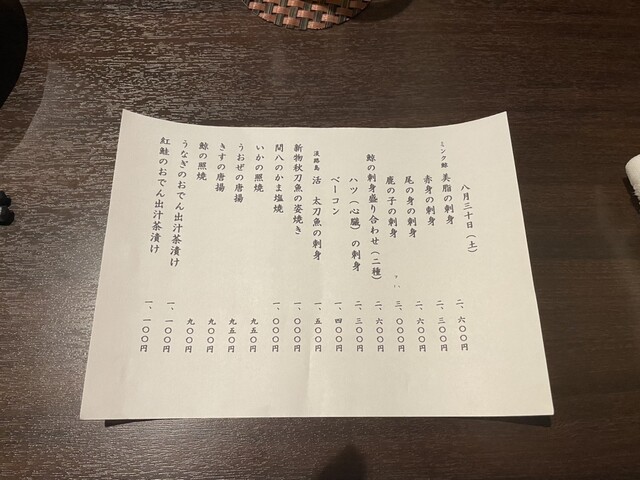 八月三十日（土）
ミンク鯨 美脂の刺身 二、六〇〇円
赤身の刺身 二、三〇〇円
尾の身の刺身 二、六〇〇円
鹿の子の刺身 三、〇〇〇円
鯨の刺身盛り合わせ（二種） 二、六〇〇円
ハツ（心臓）の刺身 二、三〇〇円
ベーコン 一、四〇〇円
淡路島 活 太刀魚の刺身 一、五〇〇円
新物秋刀魚の姿焼き 一、〇〇〇円
間八のかま塩焼 一、〇〇〇円
いかの照焼 九五〇円
うおぜの唐揚 九五〇円
きすの唐揚 九〇〇円
鯨の照焼 九〇〇円
うなぎのおでん出汁茶漬け 一、一〇〇円
紅鮭のおでん出汁茶漬け 一、一〇〇円